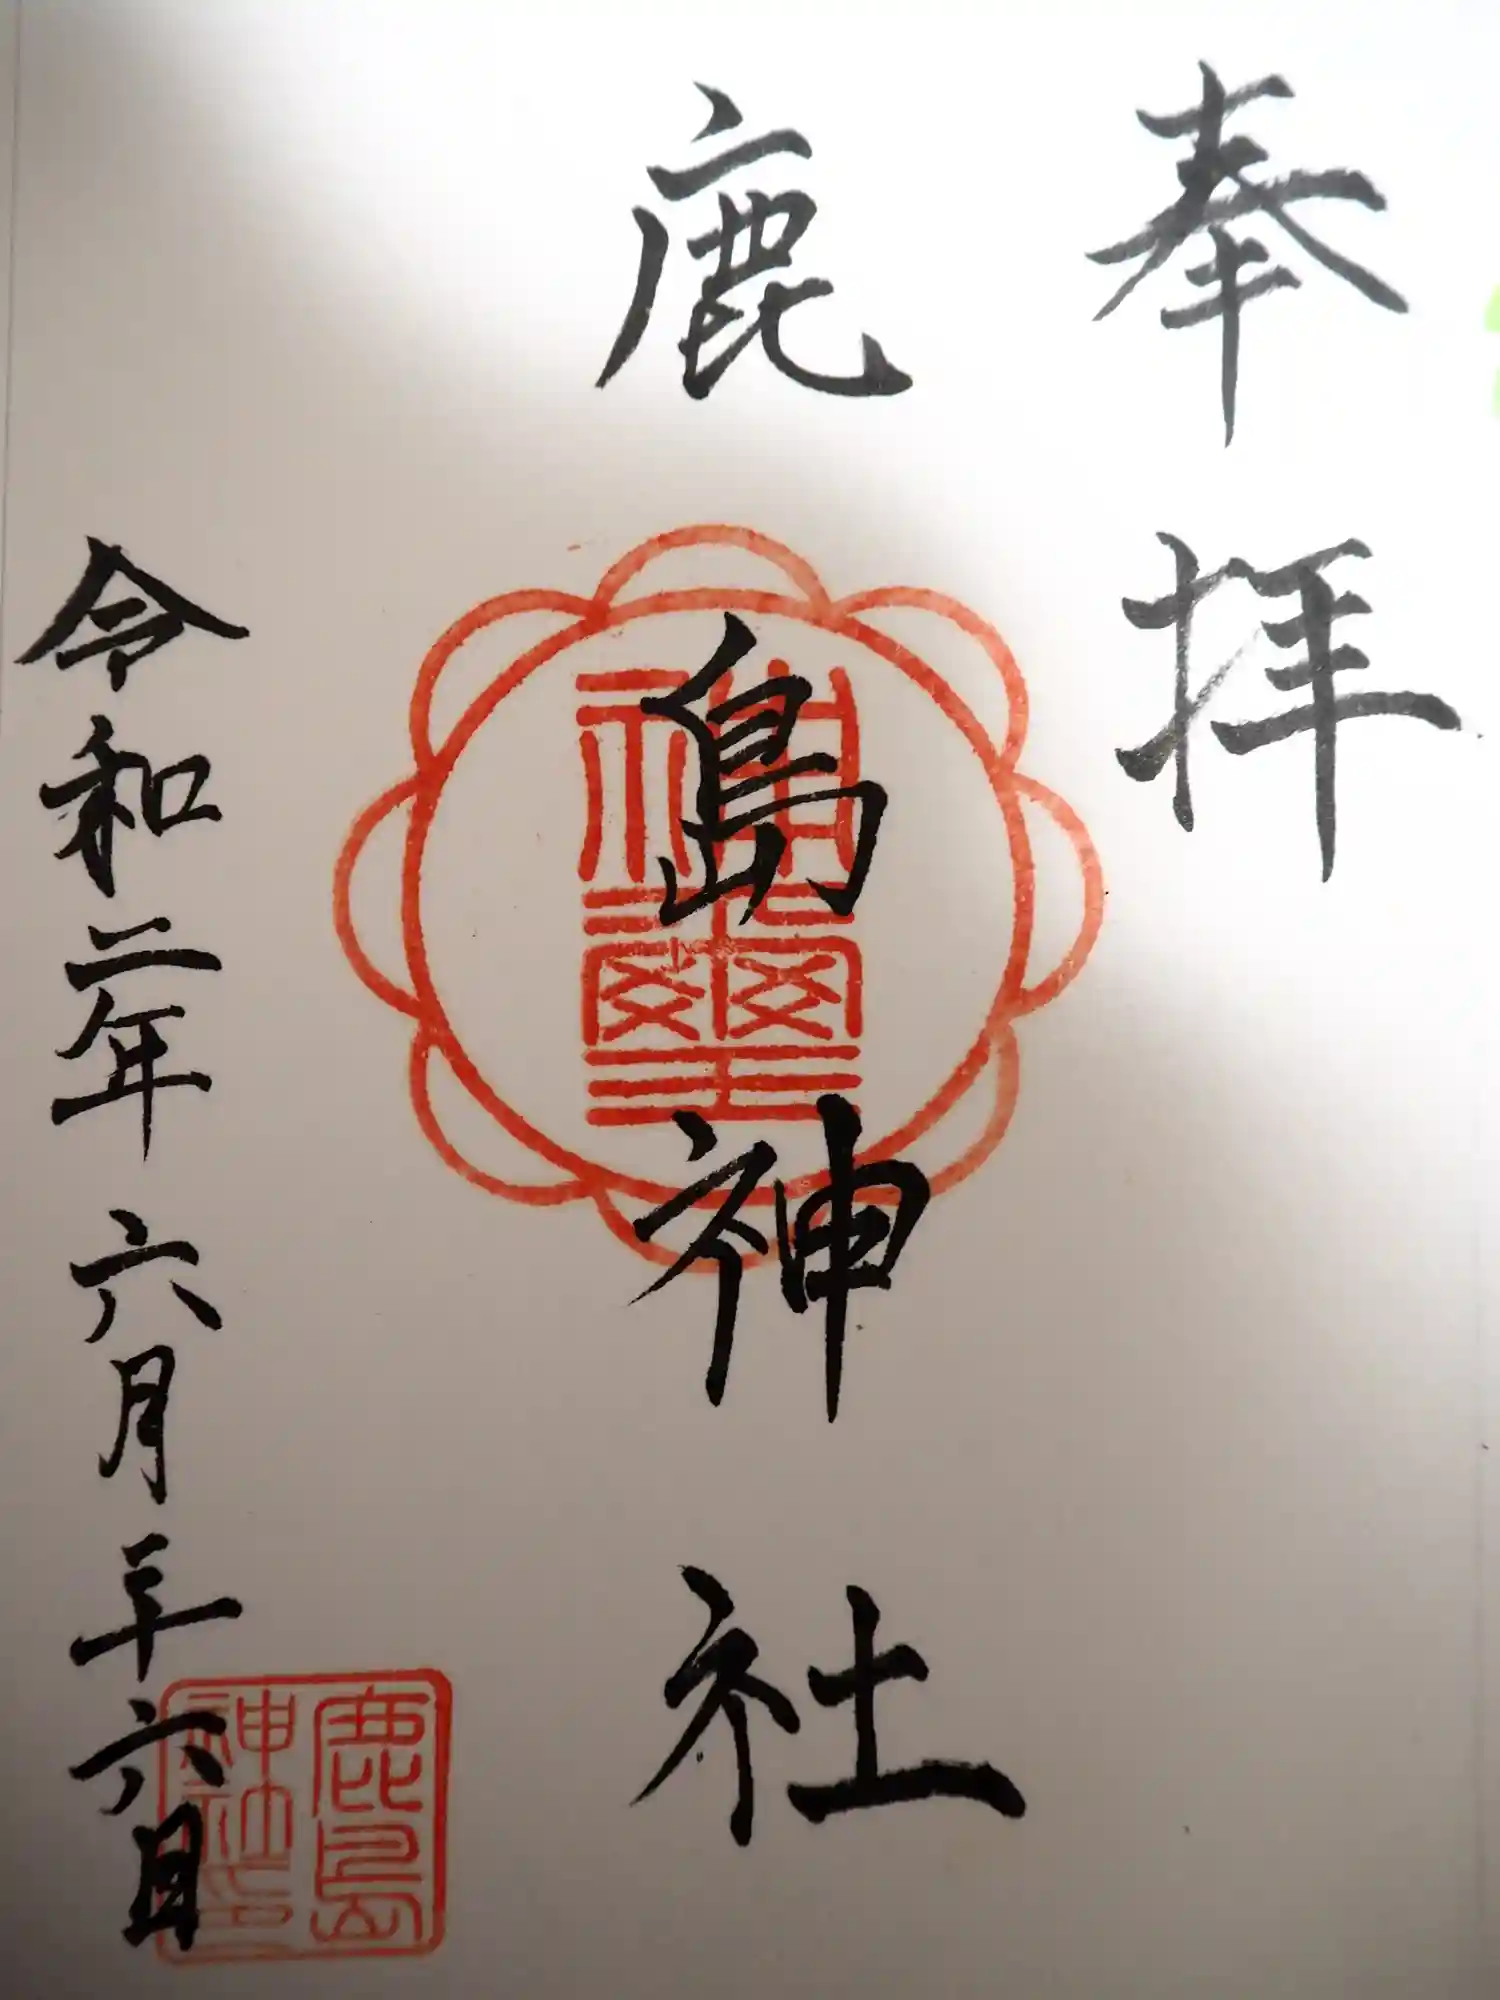 奉拝
鹿島神社
神璽
令和二年六月二十六日
鹿島
神社印